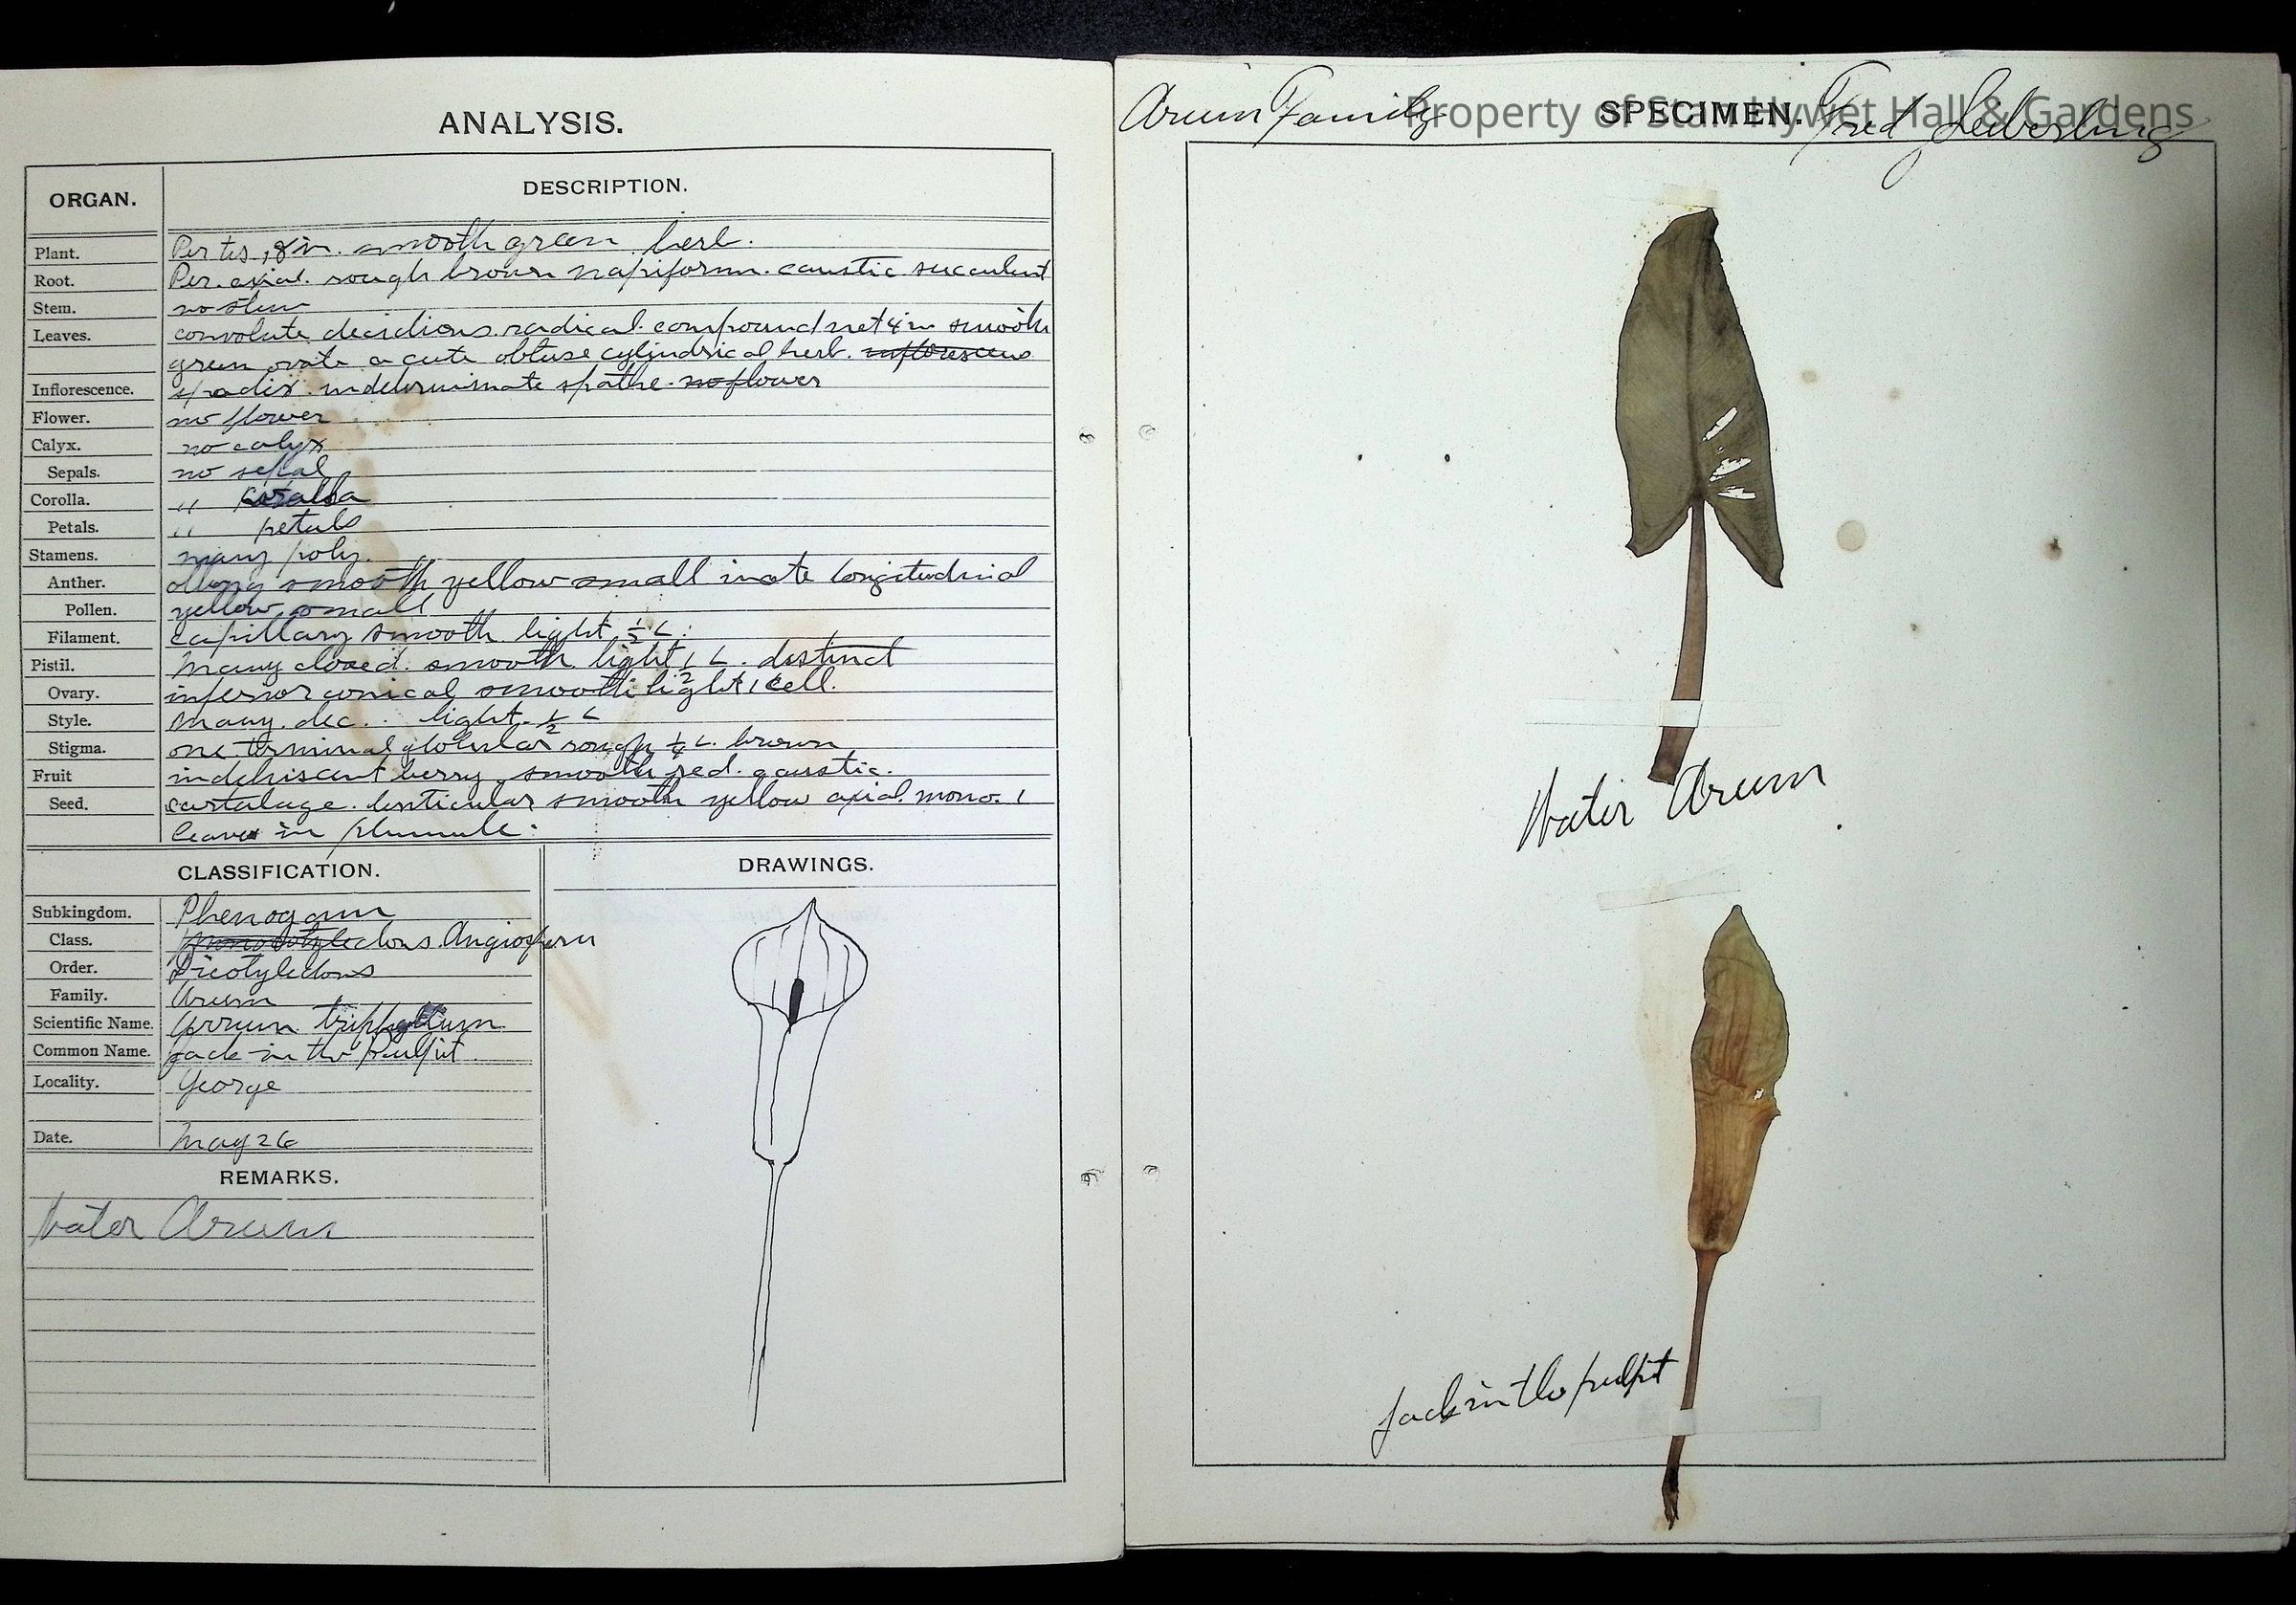 ANALYSIS.
ORGAN. DESCRIPTION.
Plant. Per tis, 8 in. smooth green herb.
Root. Per. axial. rough brown napiform. caustic. succulent
Stem. no stem
Leaves. convolute decidious. radical. compound net 4 in smooth
green ovate acute obtuse cylindrical herb. inflorescens
Inflorescence. spadix. indeterminate spathe. no flower
Flower. no flower
Calyx. no calyx
Sepals. no sepal
Corolla. " coralla
Petals. " petals
Stamens. many poly.
Anther. oblong smooth yellow small inate longitudnial
Pollen. yellow small
Filament. capillary smooth light 1/2 L.
Pistil. Many closed. smooth. light 1/2 L. distinct
Ovary. inferior conical smooth light 1 cell.
Style. Many. dec. . light. 1/2 L
Stigma. one terminal globular rough 1/4 L. brown
Fruit indehiscent berry smooth red. caustic.
Seed. cartalage. lenticular smooth yellow axial. mono. 1
leaves in plumule.
CLASSIFICATION. DRAWINGS.
Subkingdom. Phenogam
Class. Monocotyledons. Angiosperm
Order. Dicotyledons
Family. Arum
Scientific Name. Arrum triphyllum
Common Name. Jack-in the Pulpit.
Locality. George
Date. May 26
REMARKS.
Water Arum
Arum Family SPECIMEN. Fred Seiberling
Property of Stan Hywet Hall & Gardens
Water Arum
Jack in the pulpit